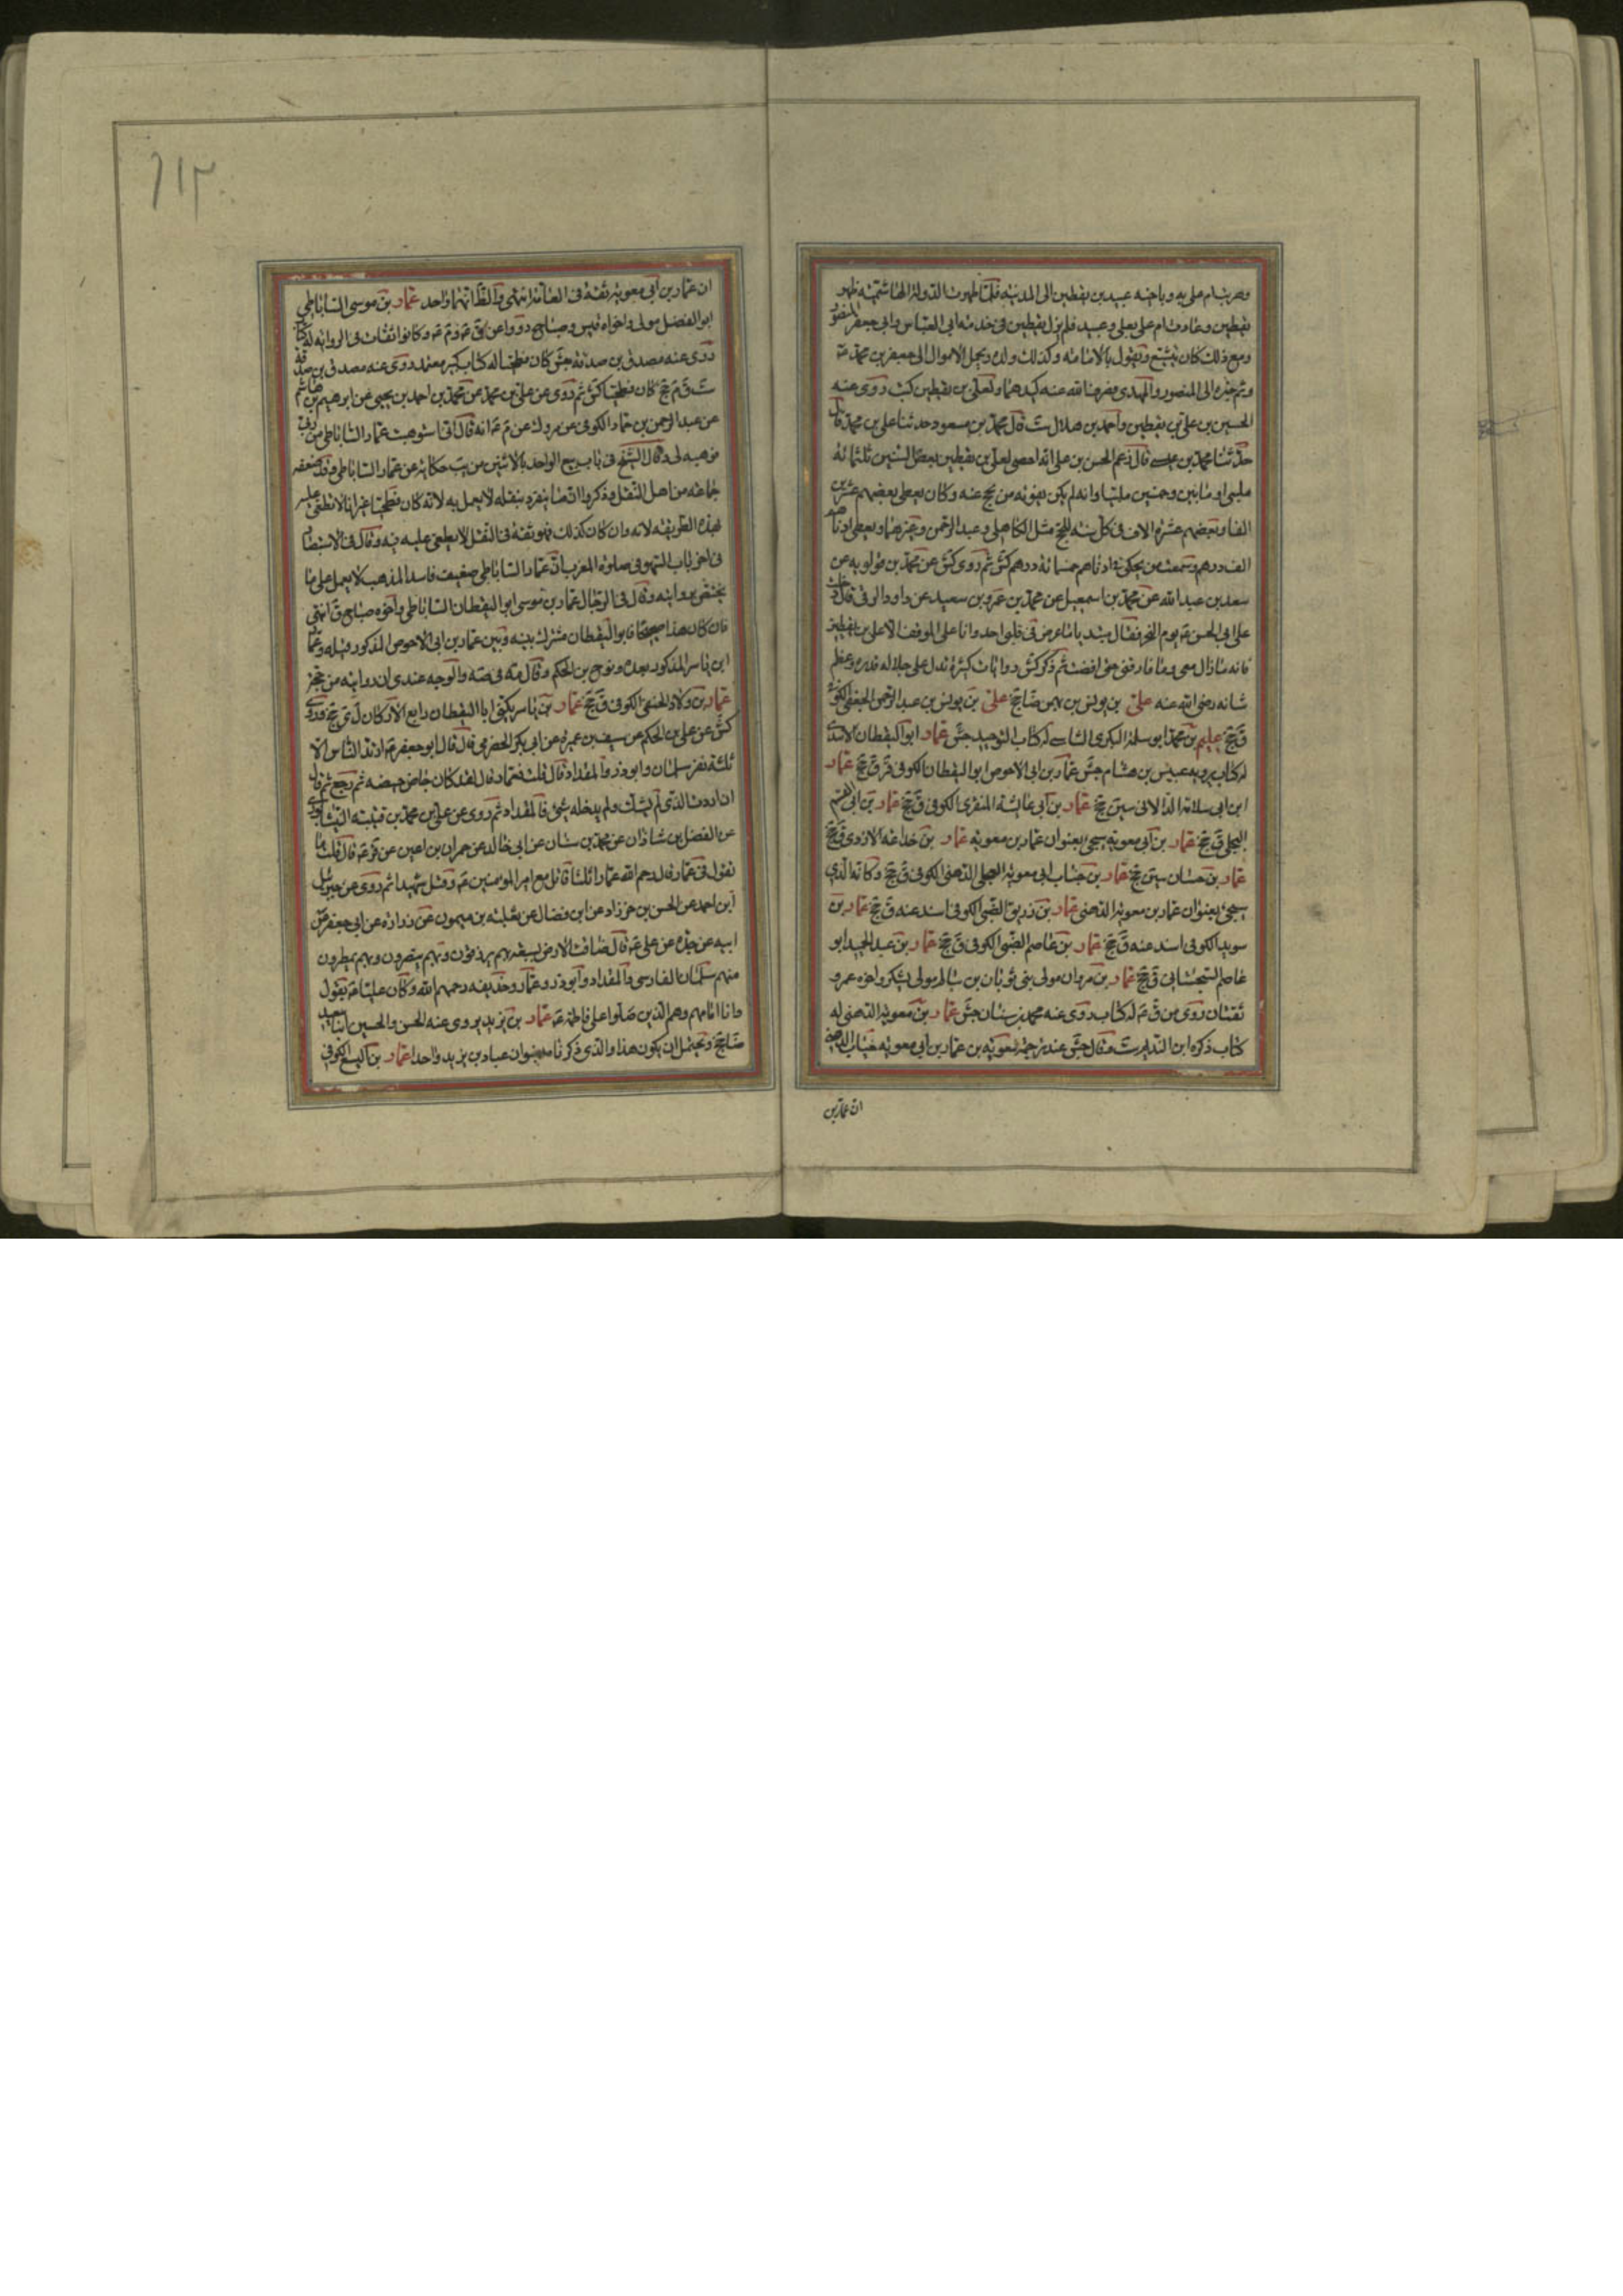 وهربت ام علي به وباخيه عبيد بن يقطين الى المدينه فلما ظهرت الدولة الهاشميه ظهر
يقطين وعادت ام علي بعلي وعبيد فلم يزل يقطين في خدمة ابي العباس وابي جعفر المنصور
ومع ذلك كان يتشيع ويقول بالامامه وكذلك ولده ويحمل الاموال الى جعفر بن محمد عه
ونم خبره الى المنصور والمهدي فصرف الله عنه كيدهما ولعلي بن يقطين كتب روى عنه
الحسين بن علي بن يقطين واحمد بن هلال ست قال محمد بن مسعود حدثنا علي بن محمد قال
حدثنا محمد بن قال زعم الحسن بن علي انه احصى لعلي بن يقطين بعض السنين ثلثمائة
ملبي او مأتين وخمسين ملبيا وانه لم يكن يفوته من يحج عنه وكان يعطي بعضهم عشرين
الفا وبعضهم عشرة الاف في كل سنه للحج مثل الكاهلي وعبد الرحمن وغيرهما ويعطي ادناهم
الف درهم وسمعت من يحكي في ادناهم خمسمائة درهم كش ثم روى كش عن محمد بن قولويه عن
سعد بن عبد الله عن محمد بن اسمعيل عن محمد بن عمرو بن سعيد عن داود الرقي قال دخلت
على ابي الحسن عه يوم النحر فقال مبتديا ما عرض في قلبي احد وانا على الموقف الا علي بن يقطين
فانه ما زال معي وما فارقني حتى افضت ثم ذكر كش روايات كثيرة تدل على جلالة قدره وعظم
شانه رضي الله عنه علي بن يونس بن بهمن ضا جخ علي بن يونس بن عبد الرحمن الجعفي الكوفي
ق جخ عليم بن محمد ابو سلمة البكري الشاسي له كتاب التوحيد جش عمار ابو اليقظان الاسدي
له كتاب يرويه عبيس بن هشام جش عمار بن ابي الاحوص ابو اليقظان الكوفي قر ق جخ عمار
ابن ابي سلامة الدالاني سين جخ عمار بن ابي عائشة المنقري الكوفي ق جخ عمار بن ابي القسم
البجلي ق جخ عمار بن ابي معويه سيجئ بعنوان عمار بن معويه عمار بن خداعه الازدي ق جخ
عمار بن حسان سين جخ عمار بن خباب ابي معوية البجلي الدهني الكوفي ق جخ وكانه الذي
سيجئ بعنوان عمار بن معوية الدهني عمار بن زريق الضبي الكوفي اسند عنه ق جخ عمار بن
سويد الكوفي اسند عنه ق جخ عمار بن عاصم الضبي الكوفي ق جخ عمار بن عبد الحميد ابو
عاصم السجستاني ق جخ عمار بن مروان مولى بني ثوبان بن سالم مولى يشكر واخوه عمرو
ثقتان روى عن ق عه له كتاب روى عنه محمد بن سنان جش عمار بن معوية الدهني له
كتاب ذكره ابن النديم ست قال جش عند ترجمة معويه بن عمار بن ابي معويه خباب الدهني
ان عمار بن
٦١٣
ان عمار بن ابي معويه ثقة في العامة انتهى والظ انهما واحد عمار بن موسى الساباطي
ابو الفضل مولى واخواه قيس وصباح رووا عن ق عه وم عه وكانوا ثقات في الروايه له كتاب
روى عنه مصدق بن صدقة جش كان فطحيا له كتاب كبير معتمد روى عنه مصدق بن صدقة
ست ق م جخ كان فطحيا كش ثم روى عن علي بن محمد عن محمد بن احمد بن يحيى عن ابرهيم بن هاشم
عن عبد الرحمن بن حماد الكوفي عن مروك عن م عه انه قال اني استوهبت عمار الساباطي من ربي
فوهبه لي وقال الشيخ في باب بيع الواحد بالاثنين من يب حكاية عن عمار الساباطي فقد ضعفه
جماعه من اهل النقل وذكروا ان ما ينفرد بنقله لا يعمل به لانه كان فطحيا غير انا لا نطعن عليه
بهذه الطريقه لانه وان كان كذلك فهو ثقة في النقل لا يطعن عليه فيه وقال في الاستبصار
في اخر باب السهو في صلوة المغرب ان عمار الساباطي ضعيف فاسد المذهب لا يعمل على ما
يختص بروايته وقال في الرجال عمار بن موسى ابو اليقظان الساباطي واخوه صباح ق انتهى
فان كان هذا صحيحا فابو اليقظان مشترك بينه وبين عمار بن ابي الاحوص المذكور قبله وعمار
ابن ياسر المذكور بعده ونوح بن الحكم وقال مه في صه والوجه عندي ان روايته مرجحة
عمار بن ولاد الحنفي الكوفي ق جخ عمار بن ياسر يكنى ابا اليقظان رابع الاركان ل ي جخ وروى
كش عن علي بن الحكم عن سيف بن عميرة عن ابي بكر الحضرمي قال قال ابو جعفر عه ارتد الناس الا
ثلثة نفر سلمان وابو ذر والمقداد قال قلت فعمار قال لقد كان جاض جيضه ثم رجع ثم قال
ان اردت الذي لم يشك ولم يدخله شئ فالمقداد ثم روى عن علي بن محمد بن قتيبه النيشابوري
عن الفضل بن شاذان عن محمد بن سنان عن ابي خالد عن حمران بن اعين عن قر عه قال قلت ما
تقول في عمار قال رحم الله عمارا ثلثا قاتل مع امير المومنين عه وقتل شهيدا ثم روى عن جبرئيل
ابن احمد عن الحسن بن خرزاد عن ابن فضال عن ثعلبه بن ميمون عن زراره عن ابي جعفر عن
ابيه عن جده عن علي عه قال ضاقت الارض بسبعه بهم يرزقون وبهم ينصرون وبهم يمطرون
منهم سلمان الفارسي والمقداد وابو ذر وعمار وحذيفه رحمهم الله وكان علي عه يقول
وانا امامهم وهم الذين صلوا على فاطمة عه عمار بن يزيد يروي عنه الحسن والحسين ابنا سعيد
ضا جخ ويحتمل ان يكون هذا والذي ذكرنا بعنوان عباد بن يزيد واحدا عمار بن اليسع الكوفي